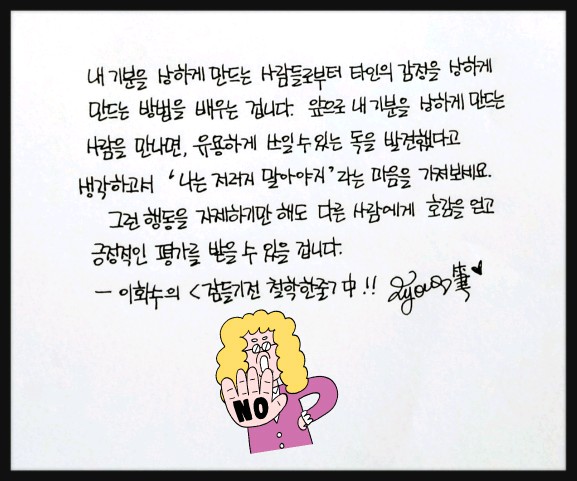 내 기분을 상하게 만드는 사람들로부터 타인의 감정을 상하게
만드는 방법을 배우는 겁니다. 앞으로 내 기분을 상하게 만드는
사람을 만나면, 유용하게 쓰일 수 있는 독을 발견했다고
생각하고서 '나는 저러지 말아야지'라는 마음을 가져보세요.
그런 행동을 자제하기만 해도 다른 사람에게 호감을 얻고
긍정적인 평가를 받을 수 있을 겁니다.
- 이화수의 <잠들기전 철학한줄> 中 !! 筆
NO